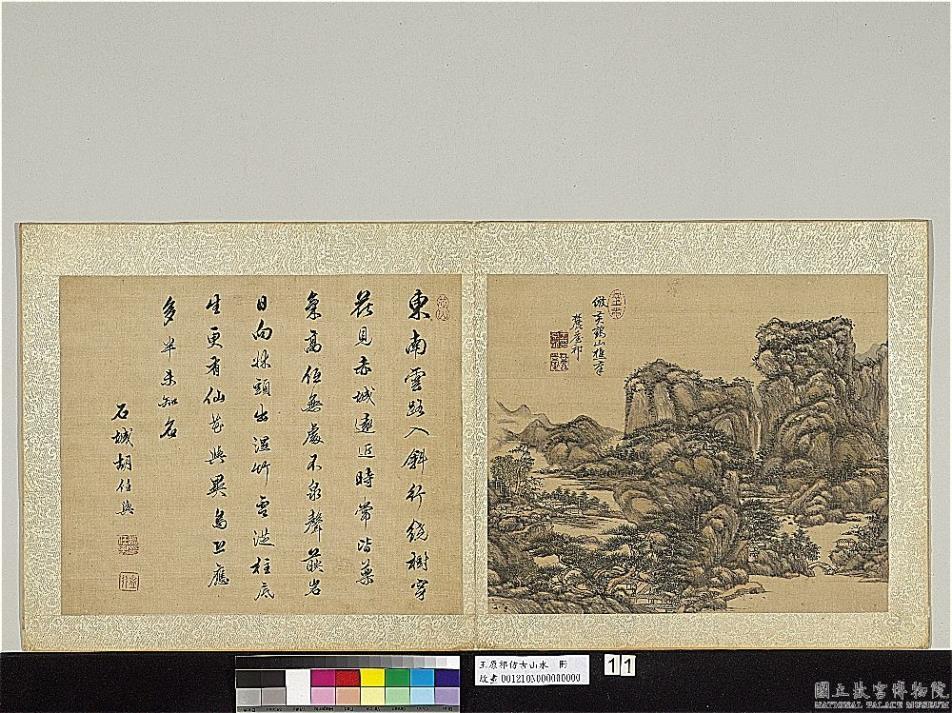 倣黃鶴山樵筆
麓臺祁
東南雲路入斜行繞樹穿
花見赤城遠近時常皆藥
氣高低無處不泉聲岩
日向牀頭出濕竹雲從柱底
生更有仙花與異鳥應
多半未知名
石城胡任輿
王原祁仿古山水 冊
故畫 001210N000000000
11
國立故宮博物院
NATIONAL PALACE MUSEUM